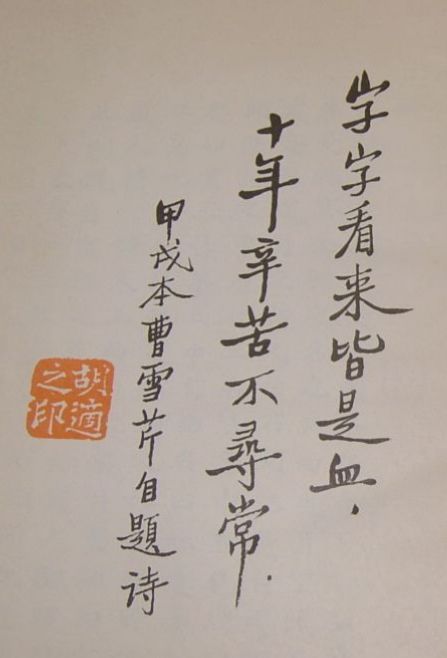 字字看来皆是血，
十年辛苦不尋常．
甲戌本曹雪芹自題诗
胡適
之印